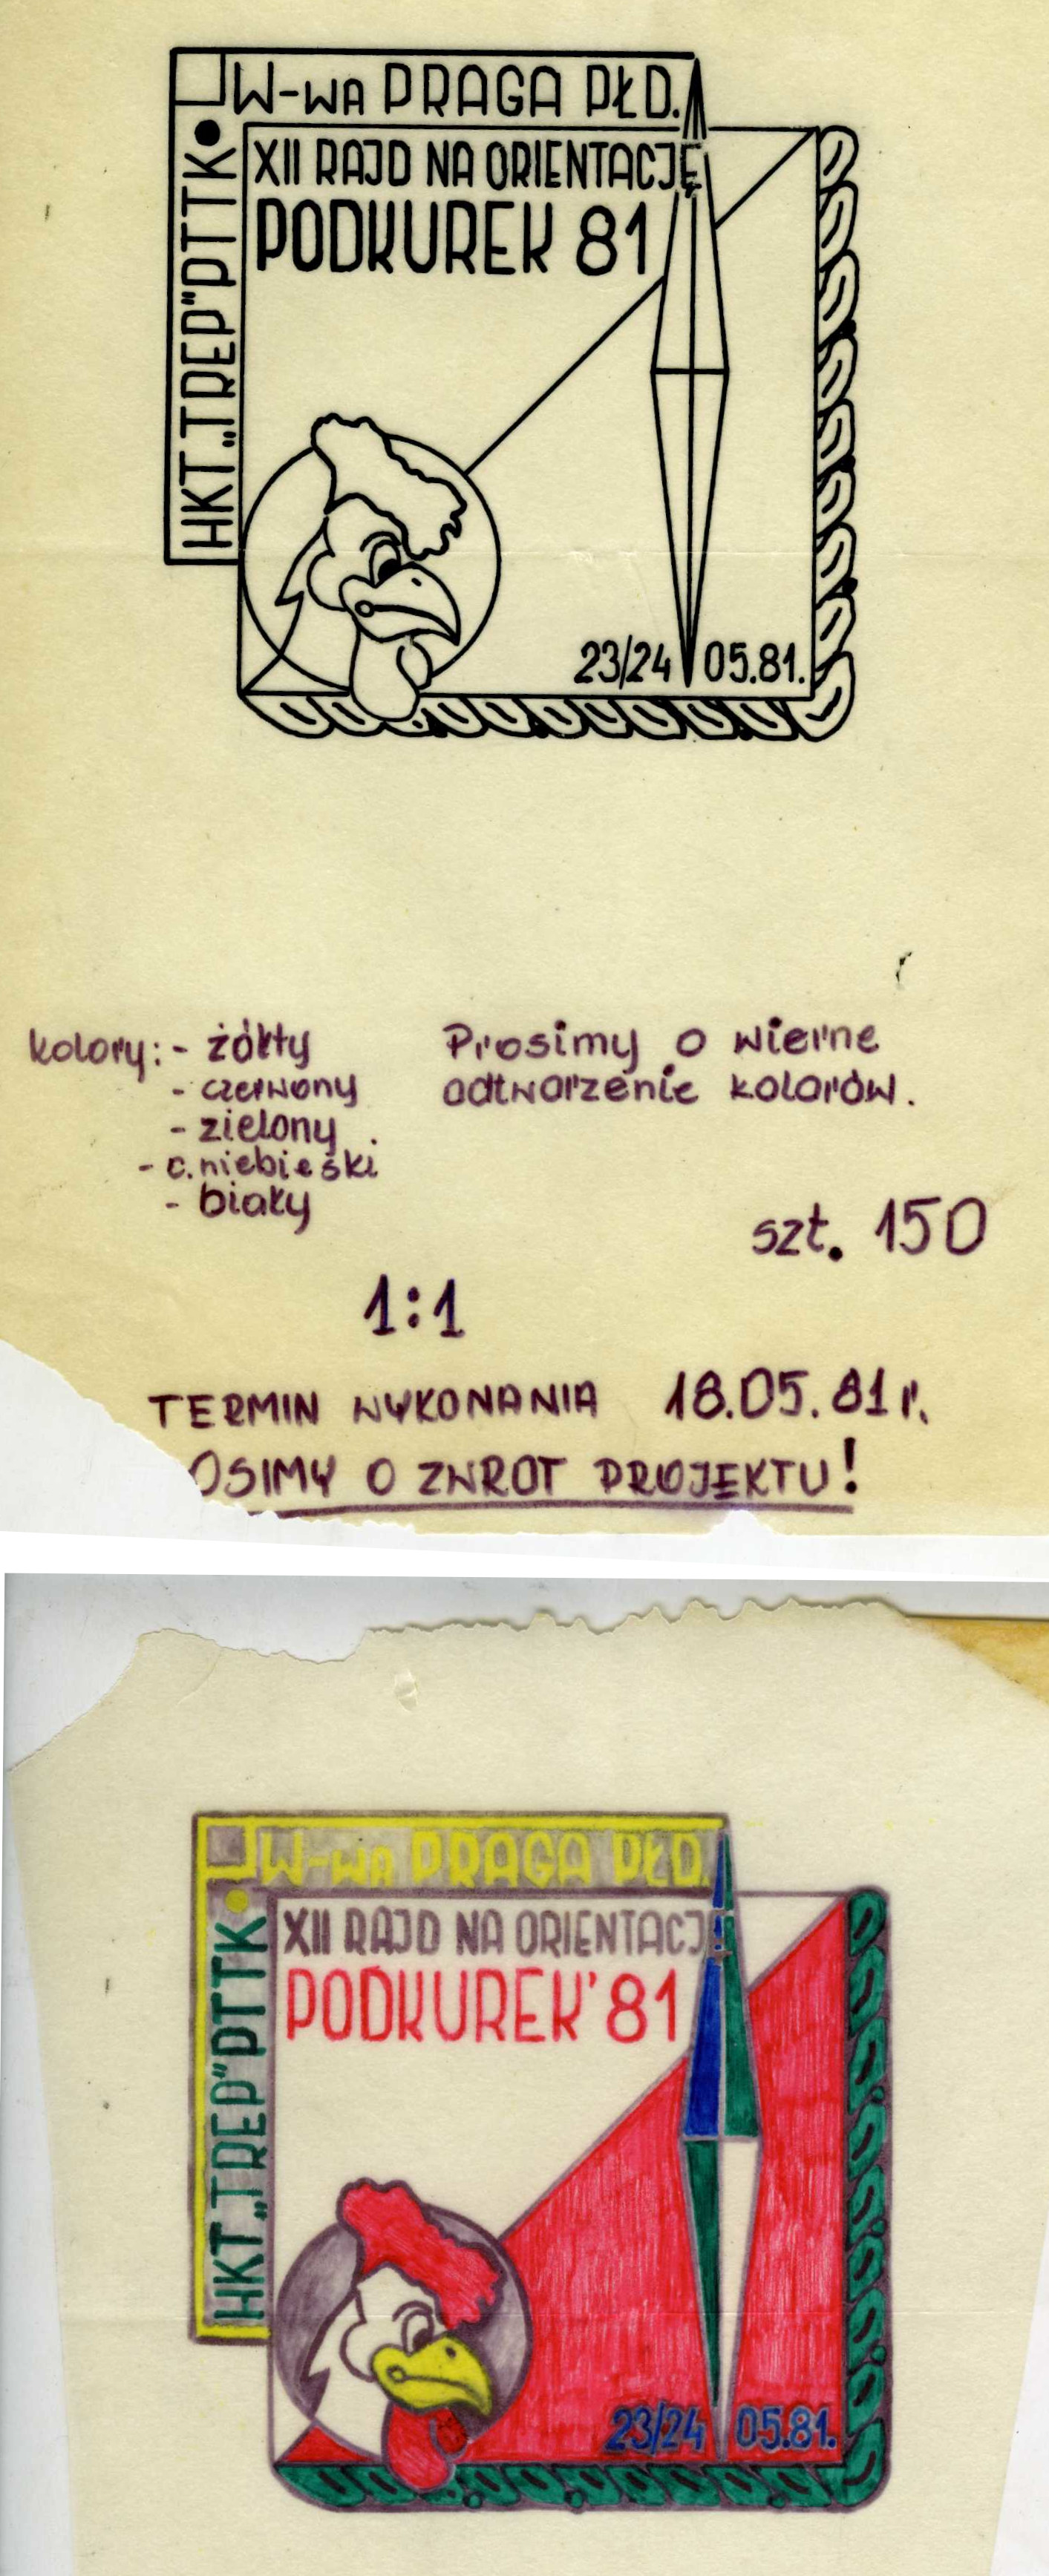 W-wa PRAGA PŁD.
HKT „TREP" PTTK
XII RAJD NA ORIENTACJĘ
PODKUREK 81
23/24 05.81.
kolory: - żółty
- czerwony
- zielony
- c. niebieski
- biały
Prosimy o wierne
odtworzenie kolorów.
szt. 150
1:1
TERMIN WYKONANIA 18.05.81 r.
OSIMY O ZWROT PROJEKTU!
W-wa PRAGA PŁD.
HKT „TREP" PTTK
XII RAJD NA ORIENTACJĘ
PODKUREK' 81
23/24 05.81.